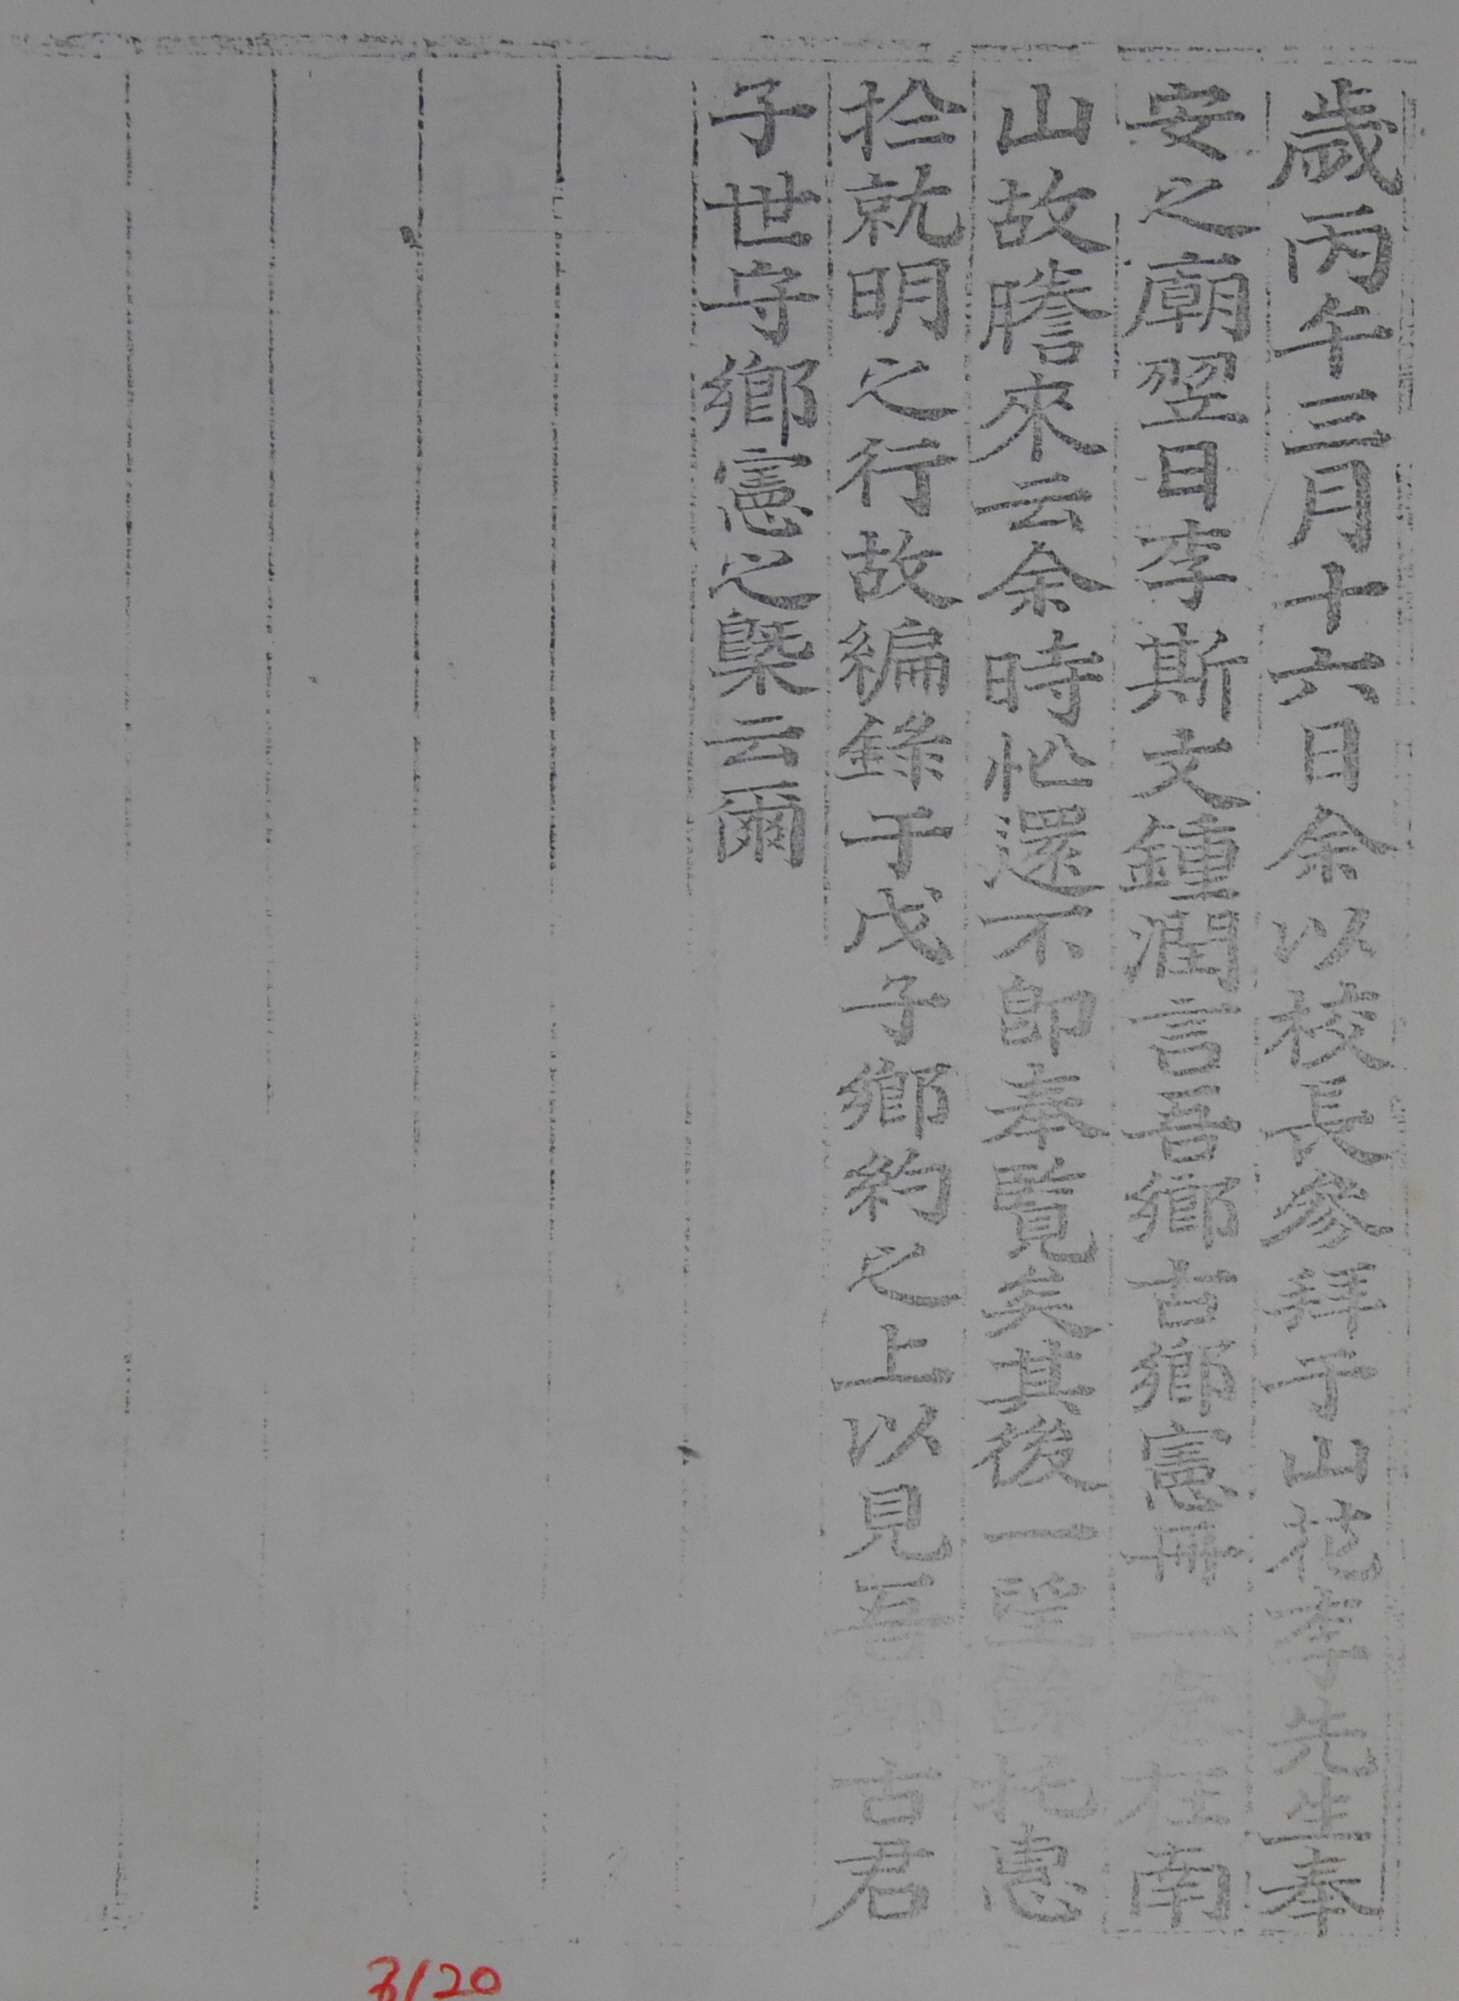 歲丙午三月十六日余以校長參拜于山花李先生奉
安之廟翌日李斯文鍾潤言吾鄉古鄉憲冊一在南
山故謄來云余時忙還不卽奉覽矣其後一望托惠
於就明之行故編錄于戊子鄉約之上以見吾古君
子世守鄉憲之槩云爾
3/20